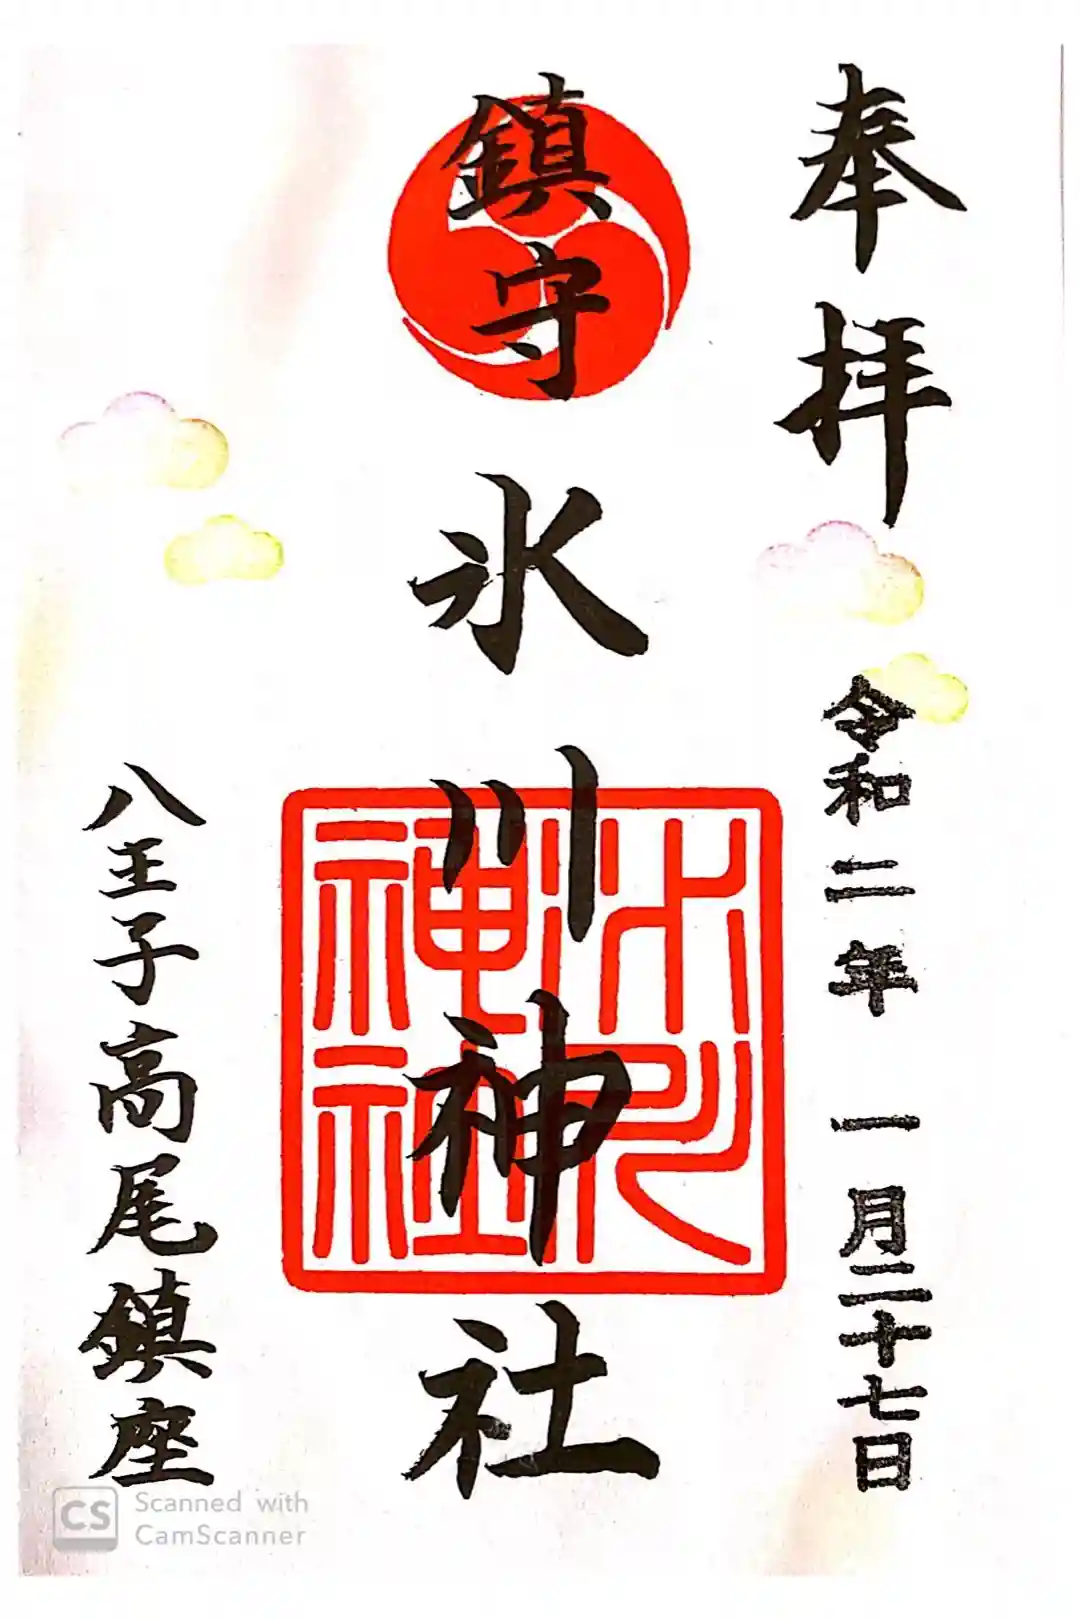 奉拝
令和二年 一月二十七日
鎮守 氷川神社
氷川神社
八王子高尾鎮座
CS Scanned with
CamScanner